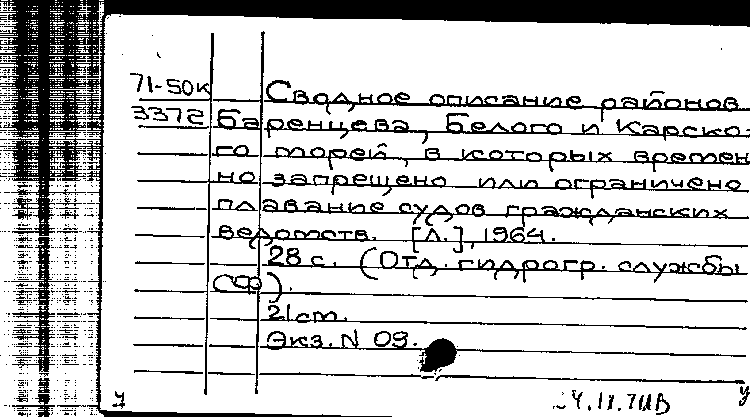 71-50к Сводное описание районов
3372 Баренцева, Белого и Карско-
го морей, в которых времен
но запрещено или ограничено
плавание судов гражданских
ведомств. [Л.], 1964.
28 с. (Отд. гидрогр. службы
СФ).
21 см.
Экз. N 09.